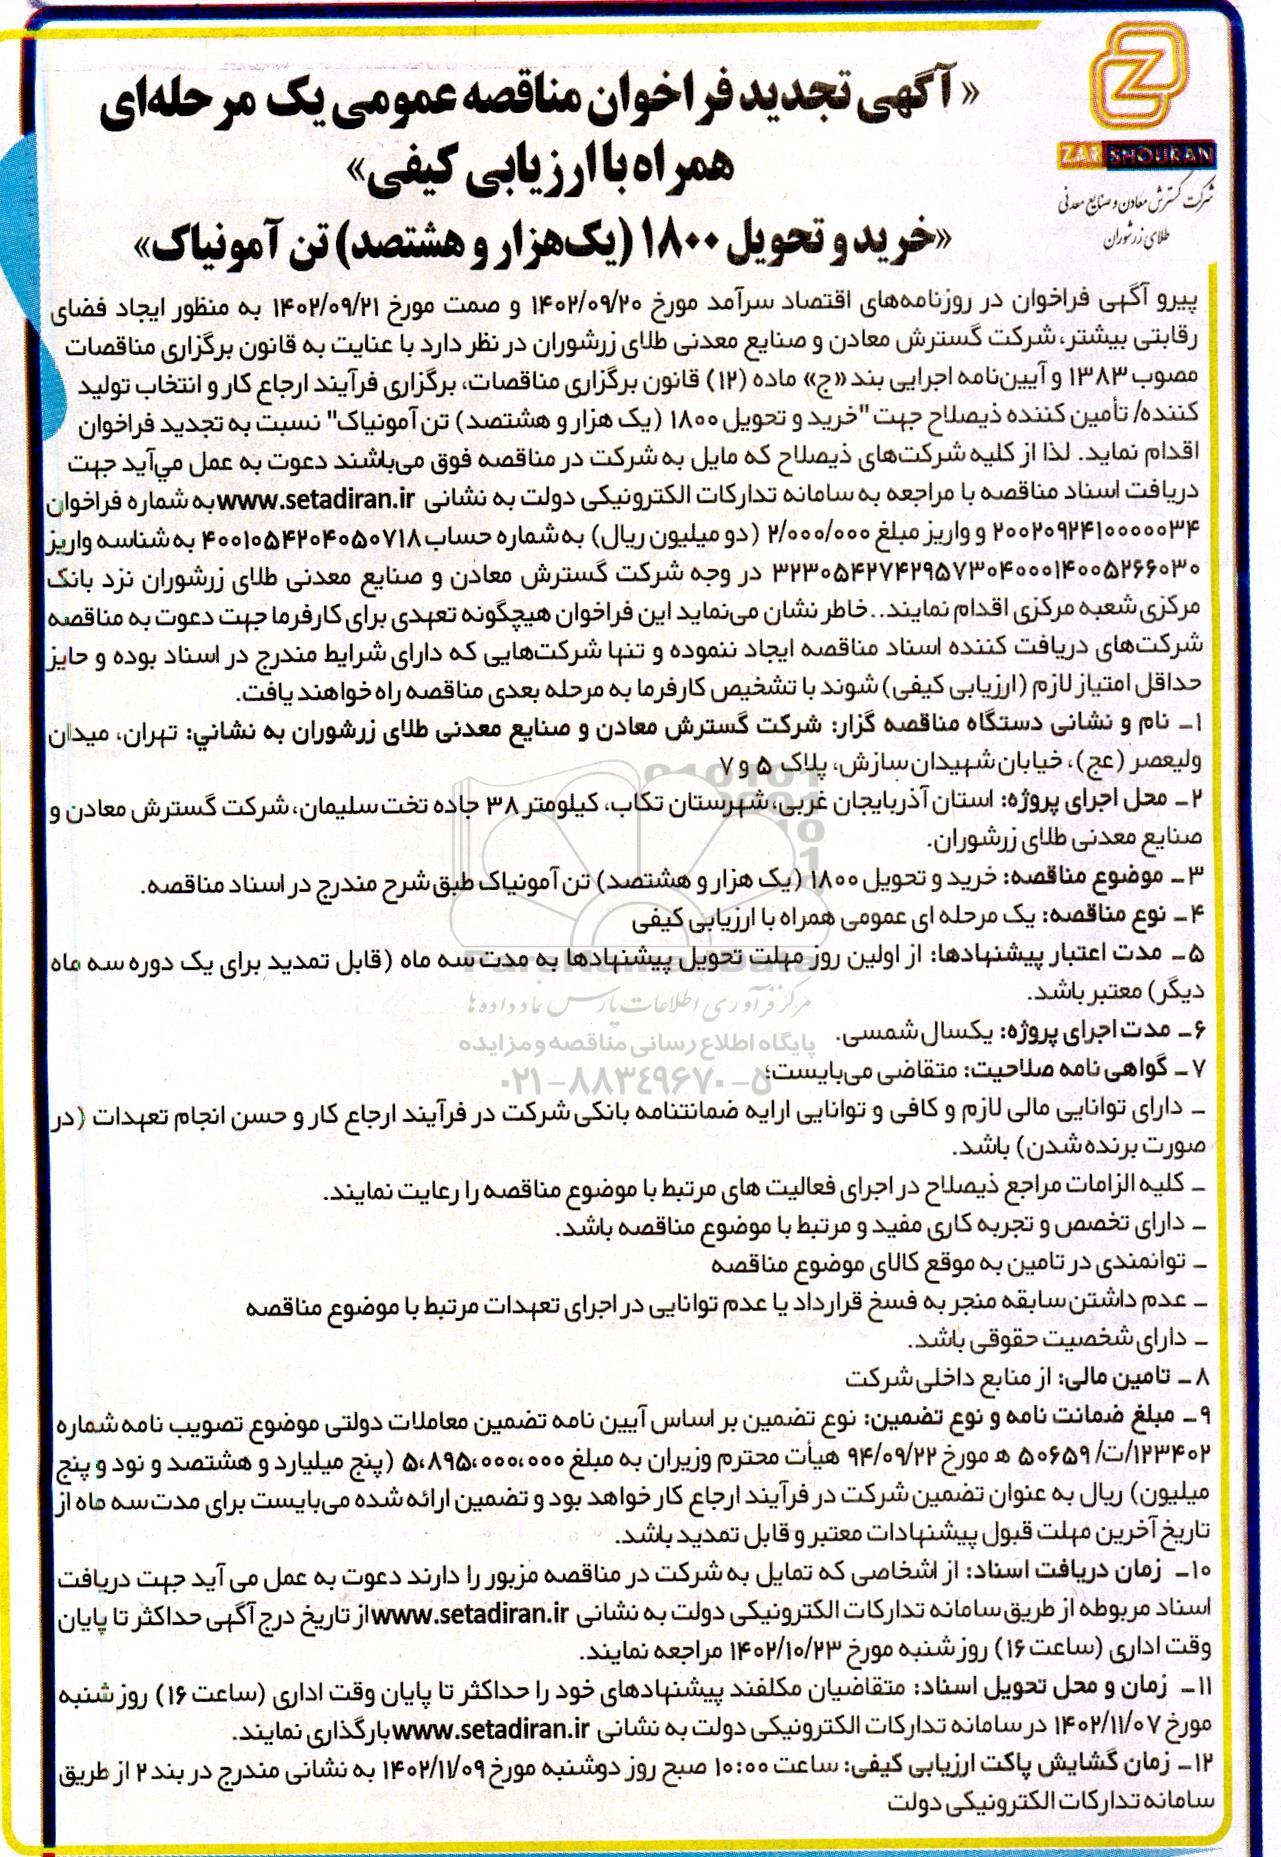 ZAR SHOURAN
شرکت گسترش معادن و صنایع معدنی
طلای زرشوران
« آگهی تجدید فراخوان مناقصه عمومی یک مرحله‌ای
همراه با ارزیابی کیفی»
«خرید و تحویل ۱۸۰۰ (یک‌هزار و هشتصد) تن آمونیاک»
پیرو آگهی فراخوان در روزنامه‌های اقتصاد سرآمد مورخ ۱۴۰۲/۰۹/۲۰ و صمت مورخ ۱۴۰۲/۰۹/۲۱ به منظور ایجاد فضای
رقابتی بیشتر، شرکت گسترش معادن و صنایع معدنی طلای زرشوران در نظر دارد با عنایت به قانون برگزاری مناقصات
مصوب ۱۳۸۳ و آیین‌نامه اجرایی بند «ج» ماده (۱۲) قانون برگزاری مناقصات، برگزاری فرآیند ارجاع کار و انتخاب تولید
کننده/ تأمین کننده ذیصلاح جهت "خرید و تحویل ۱۸۰۰ (یک هزار و هشتصد) تن آمونیاک" نسبت به تجدید فراخوان
اقدام نماید. لذا از کلیه شرکت‌های ذیصلاح که مایل به شرکت در مناقصه فوق می‌باشند دعوت به عمل مي‌آید جهت
دریافت اسناد مناقصه با مراجعه به سامانه تدارکات الکترونیکی دولت به نشانی www.setadiran.ir به شماره فراخوان
۲۰۰۲۰۹۲۴۱۰۰۰۰۰۳۴ و واریز مبلغ ۲/۰۰۰/۰۰۰ (دو میلیون ریال) به شماره حساب ۴۰۰۱۰۵۴۲۰۴۰۵۰۷۱۸ به شناسه واریز
۳۲۳۰۵۴۲۷۴۲۹۵۷۳۰۴۰۰۰۱۴۰۰۵۲۶۶۰۳۰ در وجه شرکت گسترش معادن و صنایع معدنی طلای زرشوران نزد بانک
مرکزی شعبه مرکزی اقدام نمایند.. خاطر نشان می‌نماید این فراخوان هیچگونه تعهدی برای کارفرما جهت دعوت به مناقصه
شرکت‌های دریافت کننده اسناد مناقصه ایجاد ننموده و تنها شرکت‌هایی که دارای شرایط مندرج در اسناد بوده و حایز
حداقل امتیاز لازم (ارزیابی کیفی) شوند با تشخیص کارفرما به مرحله بعدی مناقصه راه خواهند یافت.
۱ـ نام و نشانی دستگاه مناقصه گزار: شرکت گسترش معادن و صنایع معدنی طلای زرشوران به نشاني: تهران، میدان
ولیعصر (عج)، خیابان شهیدان سازش، پلاک ۵ و ۷
۲ـ محل اجرای پروژه: استان آذربایجان غربی، شهرستان تکاب، کیلومتر ۳۸ جاده تخت سلیمان، شرکت گسترش معادن و
صنایع معدنی طلای زرشوران.
۳ـ موضوع مناقصه: خرید و تحویل ۱۸۰۰ (یک هزار و هشتصد) تن آمونیاک طبق شرح مندرج در اسناد مناقصه.
۴ـ نوع مناقصه: یک مرحله ای عمومی همراه با ارزیابی کیفی
۵ـ مدت اعتبار پیشنهادها: از اولین روز مهلت تحویل پیشنهادها به مدت سه ماه (قابل تمدید برای یک دوره سه ماه
دیگر) معتبر باشد.
مرکز فرآوری اطلاعات پارس نماد داده‌ها
۶ـ مدت اجرای پروژه: یکسال شمسی.
پایگاه اطلاع رسانی مناقصه و مزایده
۷ـ گواهی نامه صلاحیت: متقاضی می‌بایست؛
۰۲۱-۸۸۳۴۹۶۷۰-۵
ـ دارای توانایی مالی لازم و کافی و توانایی ارایه ضمانتنامه بانکی شرکت در فرآیند ارجاع کار و حسن انجام تعهدات (در
صورت برنده شدن) باشد.
ـ کلیه الزامات مراجع ذیصلاح در اجرای فعالیت های مرتبط با موضوع مناقصه را رعایت نمایند.
ـ دارای تخصص و تجربه کاری مفید و مرتبط با موضوع مناقصه باشد.
ـ توانمندی در تامین به موقع کالای موضوع مناقصه
ـ عدم داشتن سابقه منجر به فسخ قرارداد یا عدم توانایی در اجرای تعهدات مرتبط با موضوع مناقصه
ـ دارای شخصیت حقوقی باشد.
۸ـ تامین مالی: از منابع داخلی شرکت
۹ـ مبلغ ضمانت نامه و نوع تضمین: نوع تضمین بر اساس آیین نامه تضمین معاملات دولتی موضوع تصویب نامه شماره
۱۲۳۴۰۲/ت/ ۵۰۶۵۹ ه مورخ ۹۴/۰۹/۲۲ هیأت محترم وزیران به مبلغ ۵،۸۹۵،۰۰۰،۰۰۰ (پنج میلیارد و هشتصد و نود و پنج
میلیون) ریال به عنوان تضمین شرکت در فرآیند ارجاع کار خواهد بود و تضمین ارائه شده می‌بایست برای مدت سه ماه از
تاریخ آخرین مهلت قبول پیشنهادات معتبر و قابل تمدید باشد.
۱۰ـ زمان دریافت اسناد: از اشخاصی که تمایل به شرکت در مناقصه مزبور را دارند دعوت به عمل می آید جهت دریافت
اسناد مربوطه از طریق سامانه تدارکات الکترونیکی دولت به نشانی www.setadiran.ir از تاریخ درج آگهی حداکثر تا پایان
وقت اداری (ساعت ۱۶) روز شنبه مورخ ۱۴۰۲/۱۰/۲۳ مراجعه نمایند.
۱۱ـ زمان و محل تحویل اسناد: متقاضیان مکلفند پیشنهادهای خود را حداکثر تا پایان وقت اداری (ساعت ۱۶) روز شنبه
مورخ ۱۴۰۲/۱۱/۰۷ در سامانه تدارکات الکترونیکی دولت به نشانی www.setadiran.ir بارگذاری نمایند.
۱۲ـ زمان گشایش پاکت ارزیابی کیفی: ساعت ۱۰:۰۰ صبح روز دوشنبه مورخ ۱۴۰۲/۱۱/۰۹ به نشانی مندرج در بند ۲ از طریق
سامانه تدارکات الکترونیکی دولت